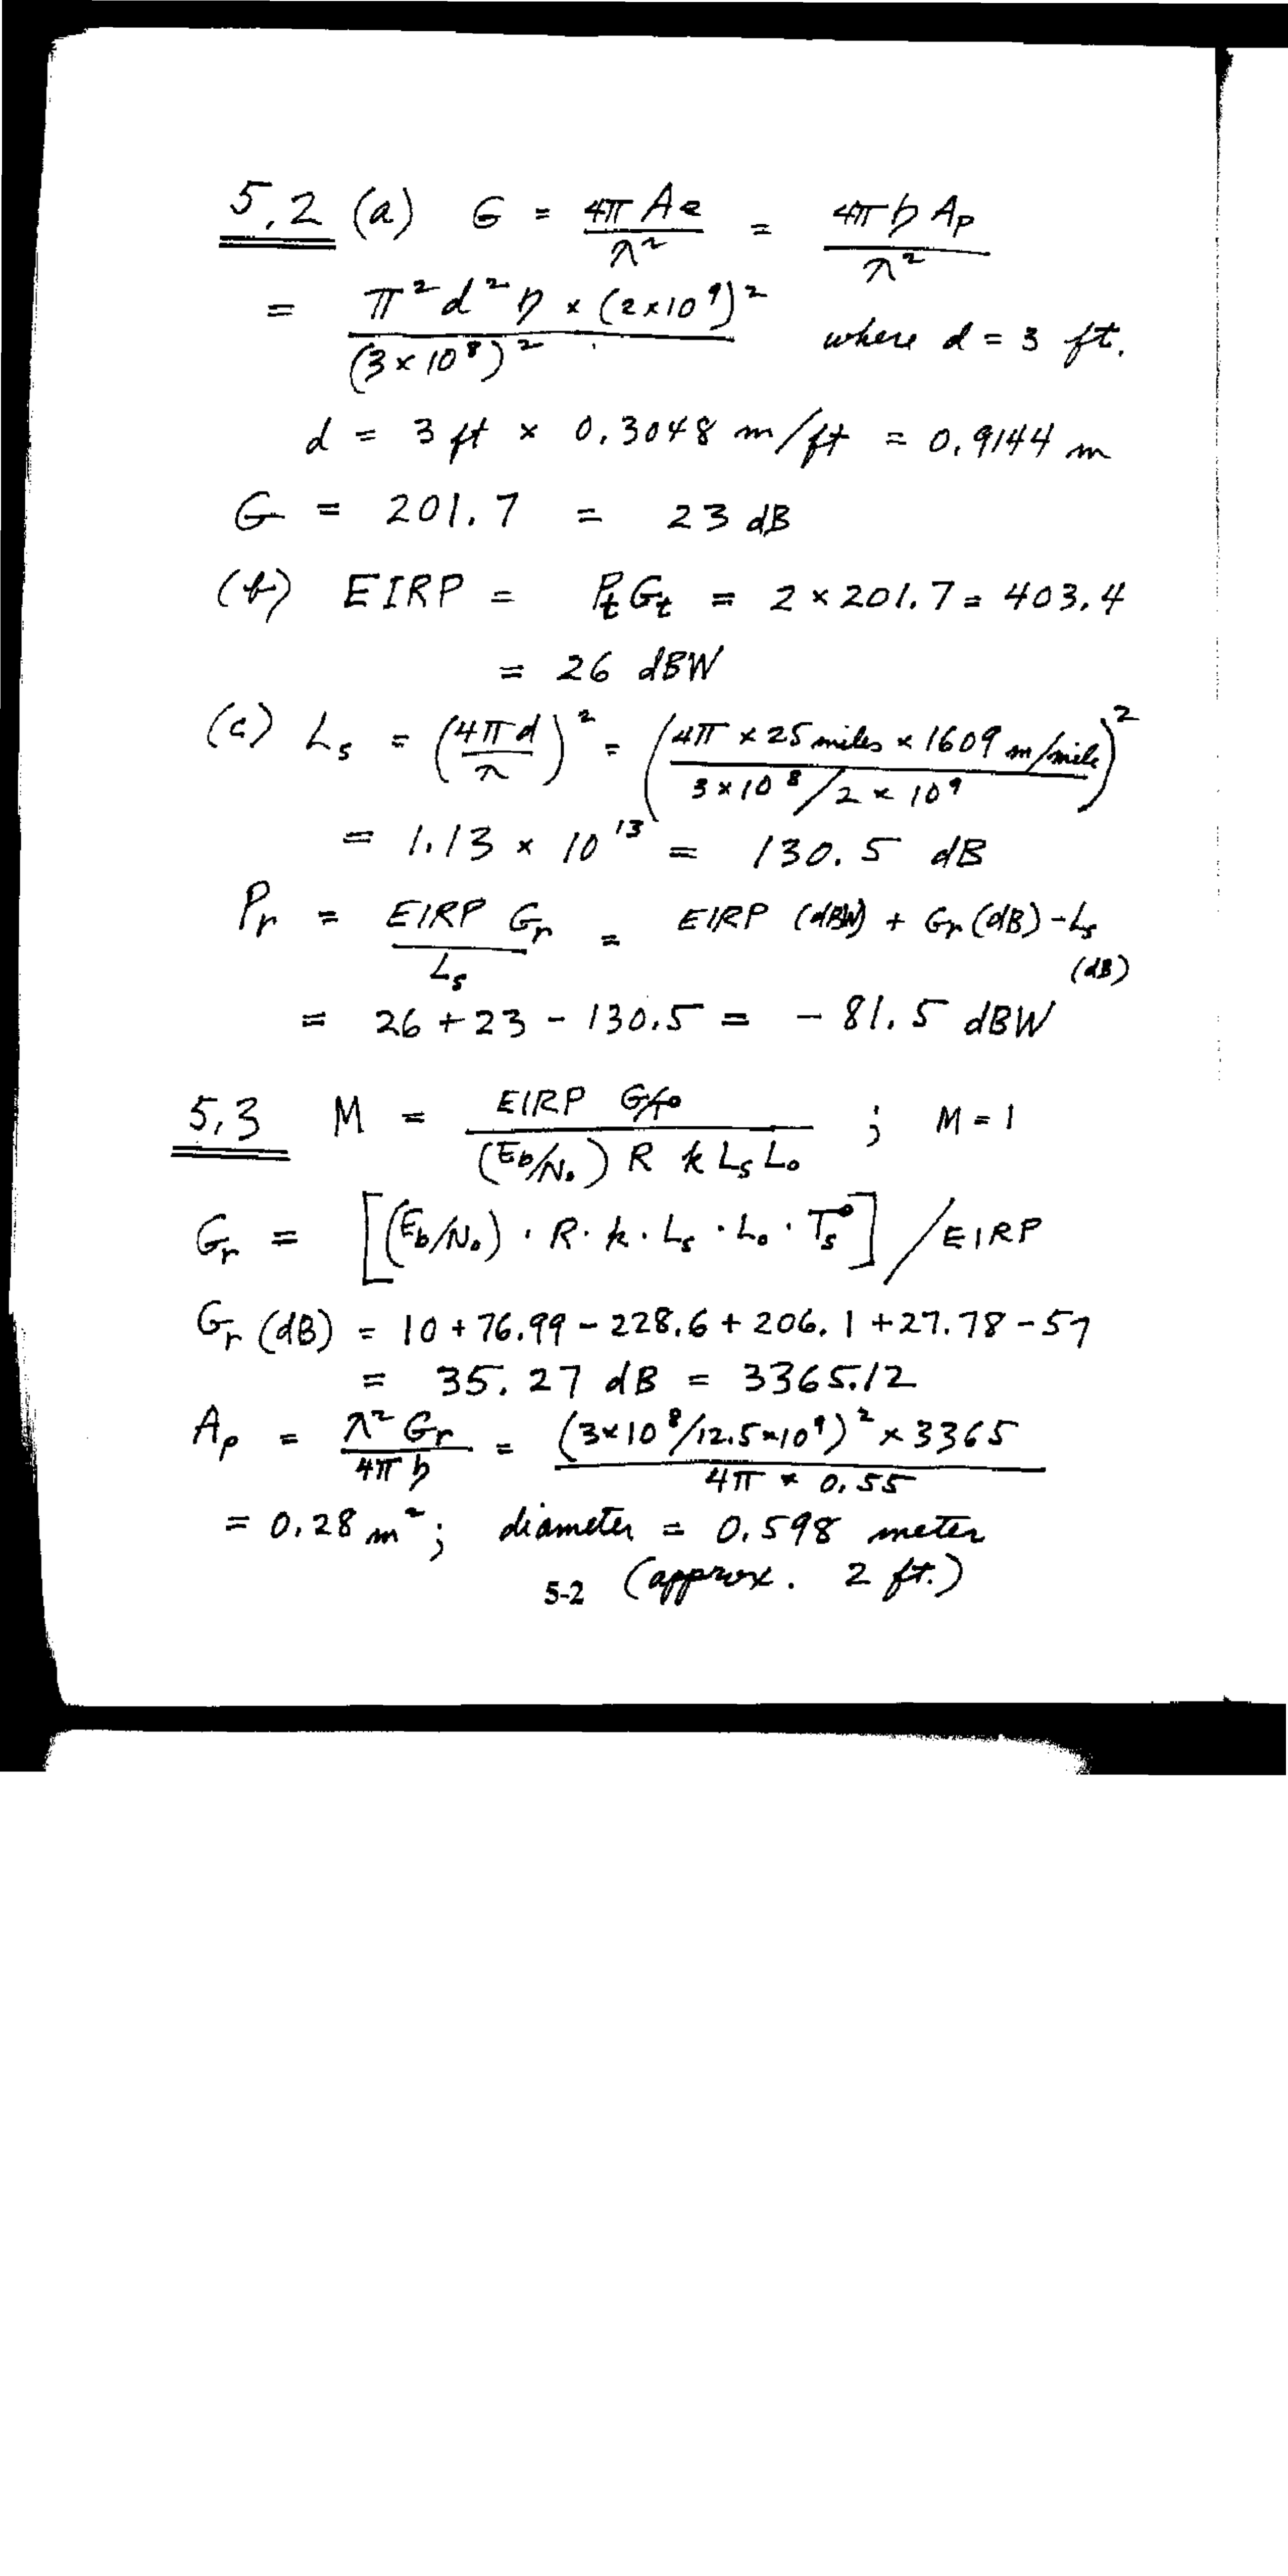 5.2 (a) G = 4π Ae / λ² = 4π η Ap / λ²
= π² d² η × (2×10⁹)² / (3×10⁸)² where d = 3 ft.
d = 3 ft × 0.3048 m/ft = 0.9144 m
G = 201.7 = 23 dB
(b) EIRP = Pt Gt = 2 × 201.7 = 403.4
= 26 dBW
(c) Ls = (4π d / λ)² = (4π × 25 miles × 1609 m/mile / 3×10⁸/2 × 10⁹)²
= 1.13 × 10¹³ = 130.5 dB
Pr = EIRP Gr / Ls = EIRP (dBW) + Gr (dB) - Ls (dB)
= 26 + 23 - 130.5 = - 81.5 dBW
5.3 M = EIRP G/T° / (Eb/N₀) R k Ls L₀ ; M = 1
Gr = [(Eb/N₀) · R · k · Ls · L₀ · Ts°] / EIRP
Gr (dB) = 10 + 76.99 - 228.6 + 206.1 + 27.78 - 57
= 35.27 dB = 3365.12
Ap = λ² Gr / 4π η = (3×10⁸/12.5×10⁹)² × 3365 / 4π × 0.55
= 0.28 m²; diameter = 0.598 meter
(approx. 2 ft.)
5-2